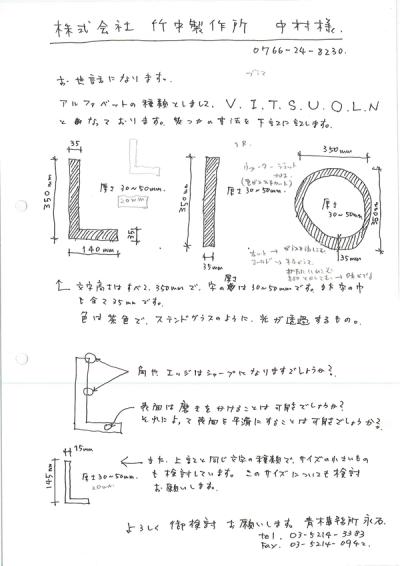 株式会社 竹中製作所 中村様.
0766-24-8230.
お世話になります。
アルファベットの種類としまして、V. I. T. S. U. O. L. N
となっております。幾つかの寸法を下記に記します。
35
350mm
厚さ 30~50mm.
20mm
140mm
35
350mm
厚さ 30~50mm.
35mm
350mm
厚さ
30~50mm.
350mm
35mm
厚さ
← 文字高さはすべて、350mmで、字の巾は30~50mmです。また字の巾
も全て35mmです。
色は茶色で、ステンドグラスのように、光が透過するもの。
角や エッジはシャープになりますでしょうか?
表面は磨きをかけることは可能でしょうか?
それによって表面を平滑にすることは可能でしょうか?
15mm
145mm
厚さ30~50mm.
20mm
← また、上記と同じ文字の種類で、サイズの小さいもの
も検討しています。このサイズについても検討
お願いします。
よろしく 御検討 お願いします。青木事務所 永石.
tel. 03-5214-3383
Fax. 03-5214-0942.